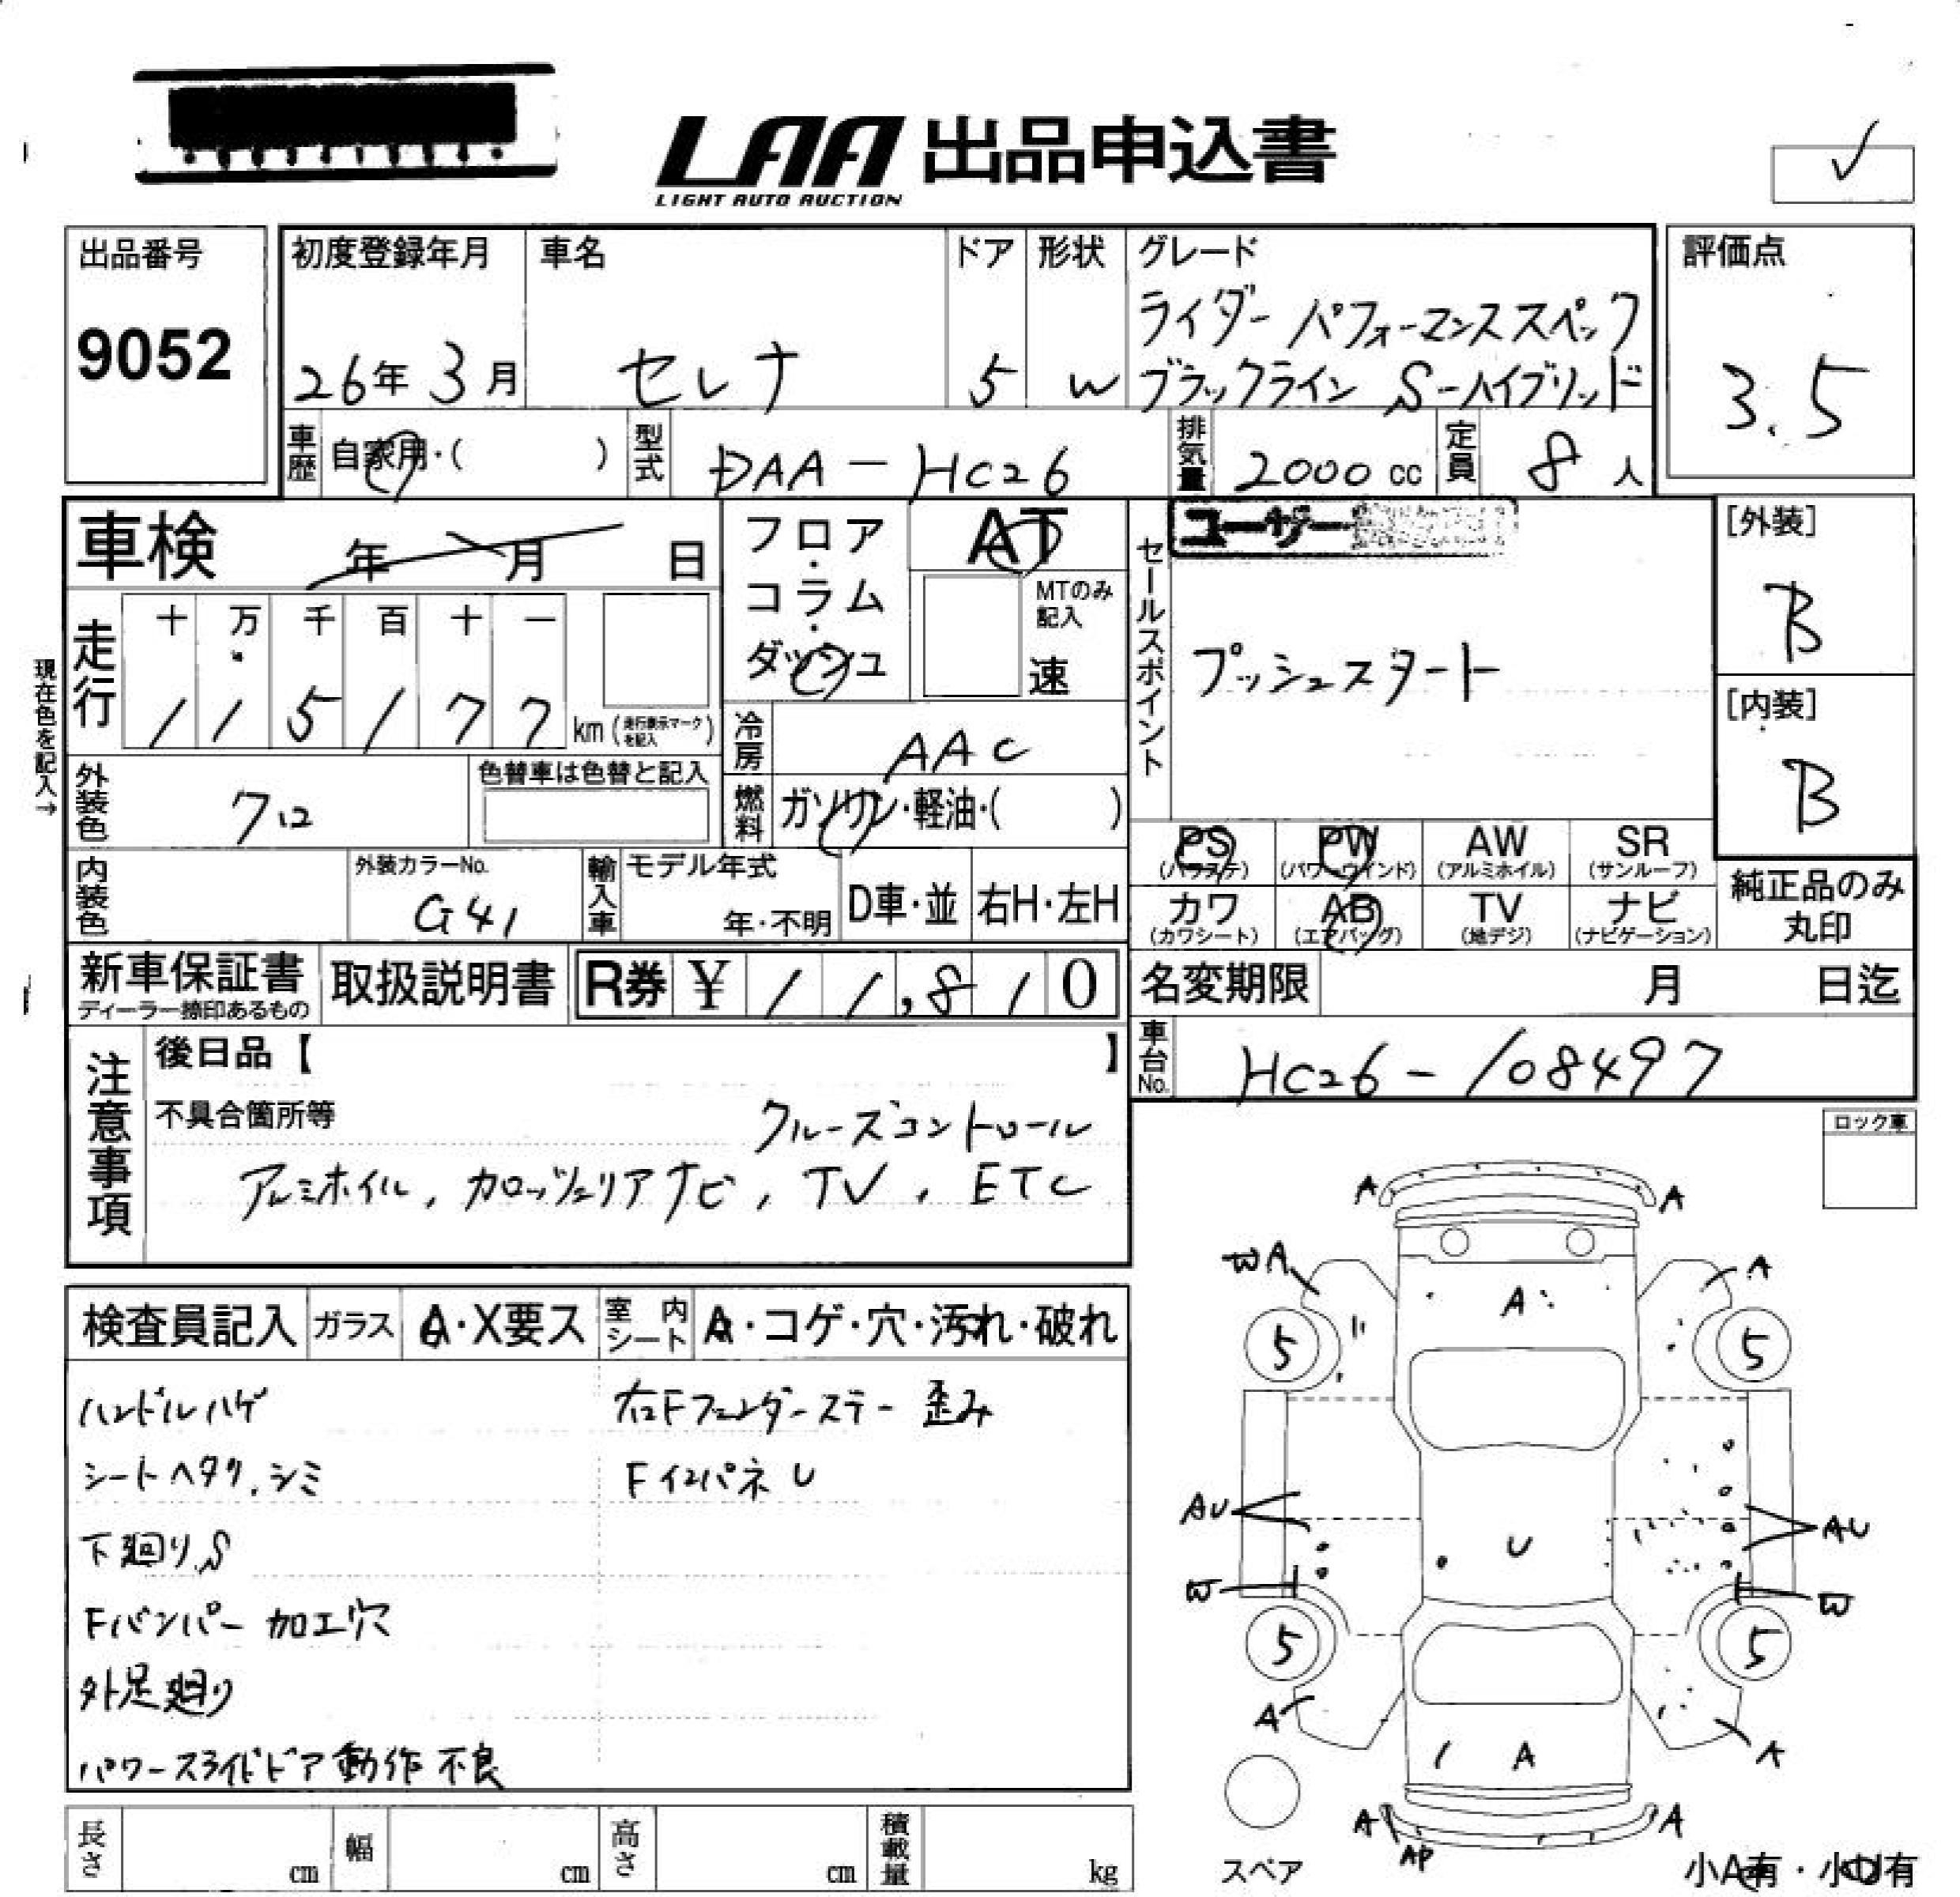 LAA 出品申込書
LIGHT AUTO AUCTION
出品番号
9052
初度登録年月
26年 3月
車名
セレナ
ドア
5
形状
W
グレード
ライダー パフォーマンススペック
ブラックライン S-ハイブリッド
評価点
3.5
車歴 自家用・( )
型式 DAA-HC26
排気量 2000 cc
定員 8 人
車検 年 月 日
フロア・コラム・ダッシュ
AT
MTのみ記入
速
セールスポイント
ユーザー
プッシュスタート
[外装]
B
[内装]
B
現在色を記入→
走行
十 万 千 百 十 一
1 1 5 1 7 7 km (走行表示マークを記入)
冷房 AAC
外装色 クロ
色替車は色替と記入
燃料 ガソリン・軽油・( )
PS (パワステ)
PW (パワーウインド)
AW (アルミホイル)
SR (サンルーフ)
カワ (カワシート)
AB (エアバッグ)
TV (地デジ)
ナビ (ナビゲーション)
純正品のみ丸印
内装色
外装カラーNo.
G41
輸入車
モデル年式
年・不明
D車・並
右H・左H
新車保証書
ディーラー捺印あるもの
取扱説明書
R券 ¥ 11,810
名変期限 月 日迄
車台No. HC26-108497
注意事項
後日品【 】
不具合箇所等
クルーズコントロール
アルミホイル, カロッツェリアナビ, TV, ETC
ロック車
検査員記入
ガラス A・X要ス
室内シート A・コゲ・穴・汚れ・破れ
ハンドルハゲ
シートヘタリ.シミ
下廻りS
Fバンパー 加工穴
外足廻り
パワースライドドア動作不良
右Fフェンダーステー 歪み
Fインパネ U
A A
WA A A
5 5
AU U AU
W W
5 5
A A A
A AP A
スペア
小A有・小U有
長さ cm
幅 cm
高さ cm
積載量 kg